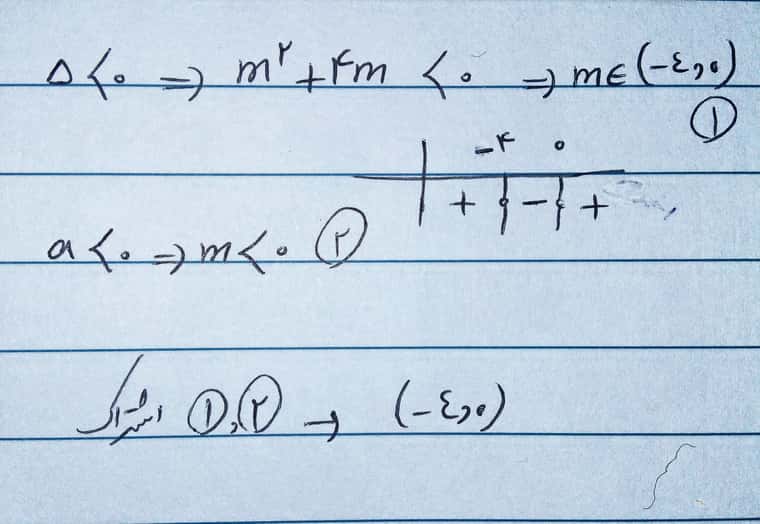 Δ < ۰ ⇒ m^۲ + ۴m < ۰ ⇒ m ∈ (-٤, ۰)
①
-۴ ۰
+ - +
a < ۰ ⇒ m < ۰ ②
اشتراک ①, ② → (-٤, ۰)